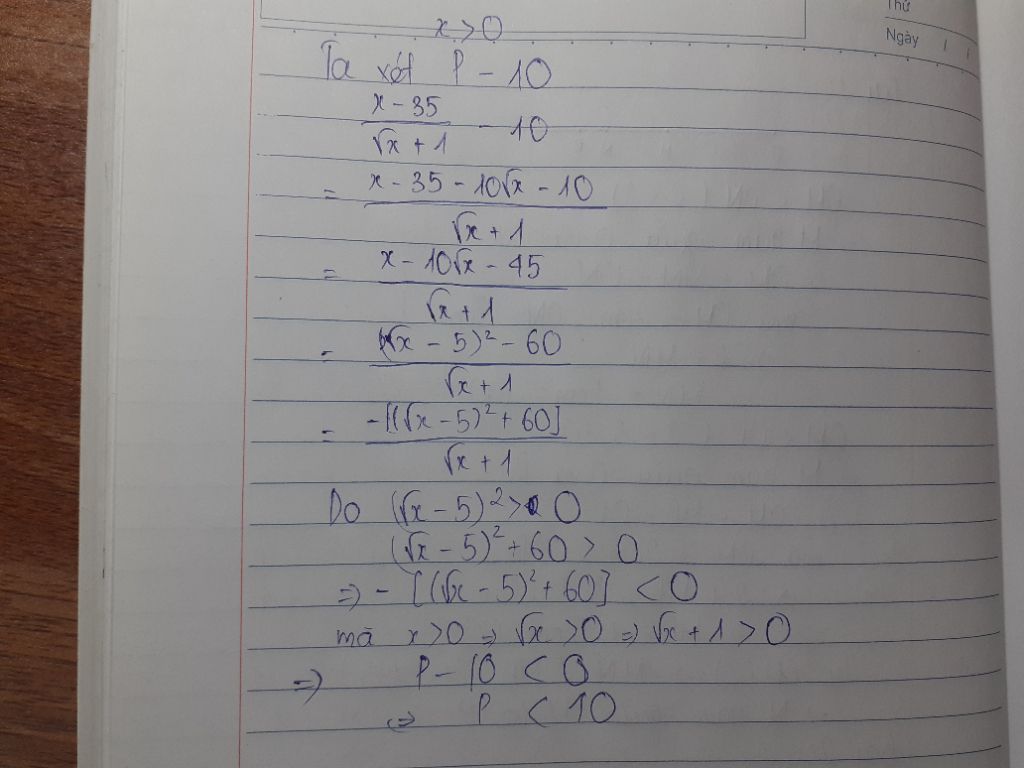 Thứ
Ngày / /
x > 0
Ta xét P - 10
x - 35
√x + 1
- 10
= x - 35 - 10√x - 10
√x + 1
= x - 10√x - 45
√x + 1
= (√x - 5)² - 60
√x + 1
= -[(√x - 5)² + 60]
√x + 1
Do (√x - 5)² > 0
(√x - 5)² + 60 > 0
=> - [(√x - 5)² + 60] < 0
mà x > 0 => √x > 0 => √x + 1 > 0
=> P - 10 < 0
<=> P < 10